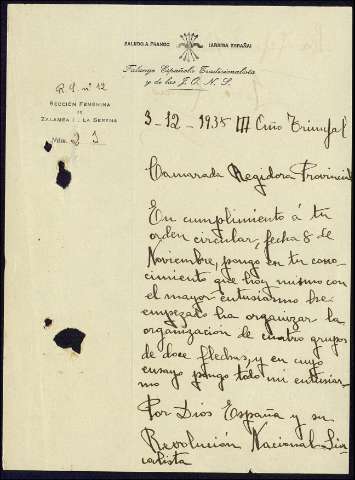 SALUDO A FRANCO ¡ARRIBA ESPAÑA!
Falange Española Tradicionalista
y de las J. O. N. S.
R. S. nº 12
SECCIÓN FEMENINA
DE
ZALAMEA LA SERENA
Núm. 23
3-12-1938 III Año Triunfal
Camarada Regidora Provincial
En cumplimiento á tu
orden circular, fecha 8 de
Noviembre, pongo en tu cono-
cimiento que hoy mismo con
el mayor entusiasmo he
empezado ha organizar la
organización de cuatro grupos
de doce flechas, y en cuyo
ensayo pongo todo mi entusias-
mo
Por Dios España y su
Revolución Nacional-Sin-
calista